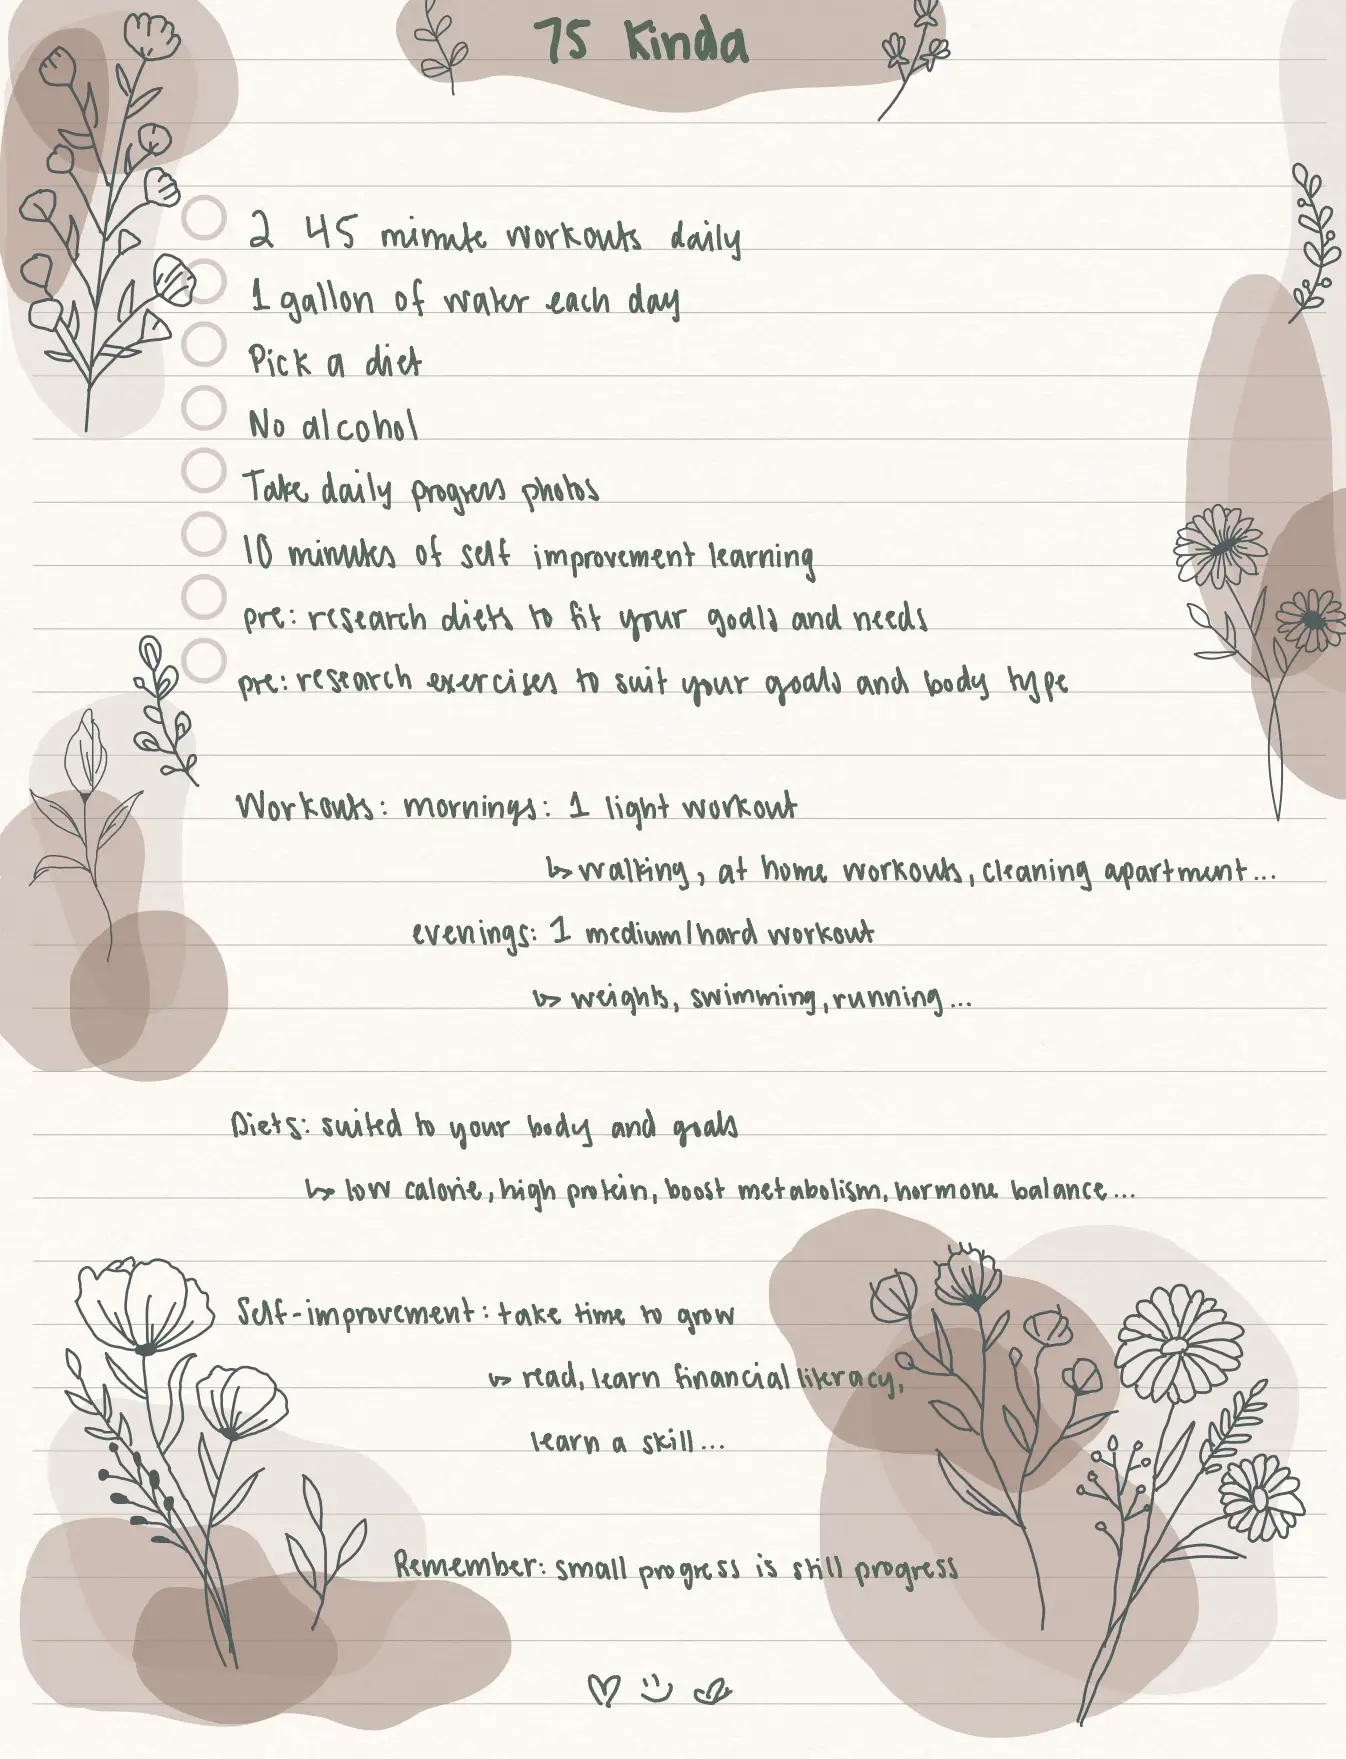 75 Kinda
2 45 minute workouts daily
1 gallon of water each day
Pick a diet
No alcohol
Take daily progress photos
10 minutes of self improvement learning
pre: research diets to fit your goals and needs
pre: research exercises to suit your goals and body type
Workouts: mornings: 1 light workout
↳ walking, at home workouts, cleaning apartment...
evenings: 1 medium/hard workout
↳ weights, swimming, running...
Diets: suited to your body and goals
↳ low calorie, high protein, boost metabolism, hormone balance...
Self-improvement: take time to grow
↳ read, learn financial literacy,
learn a skill...
Remember: small progress is still progress